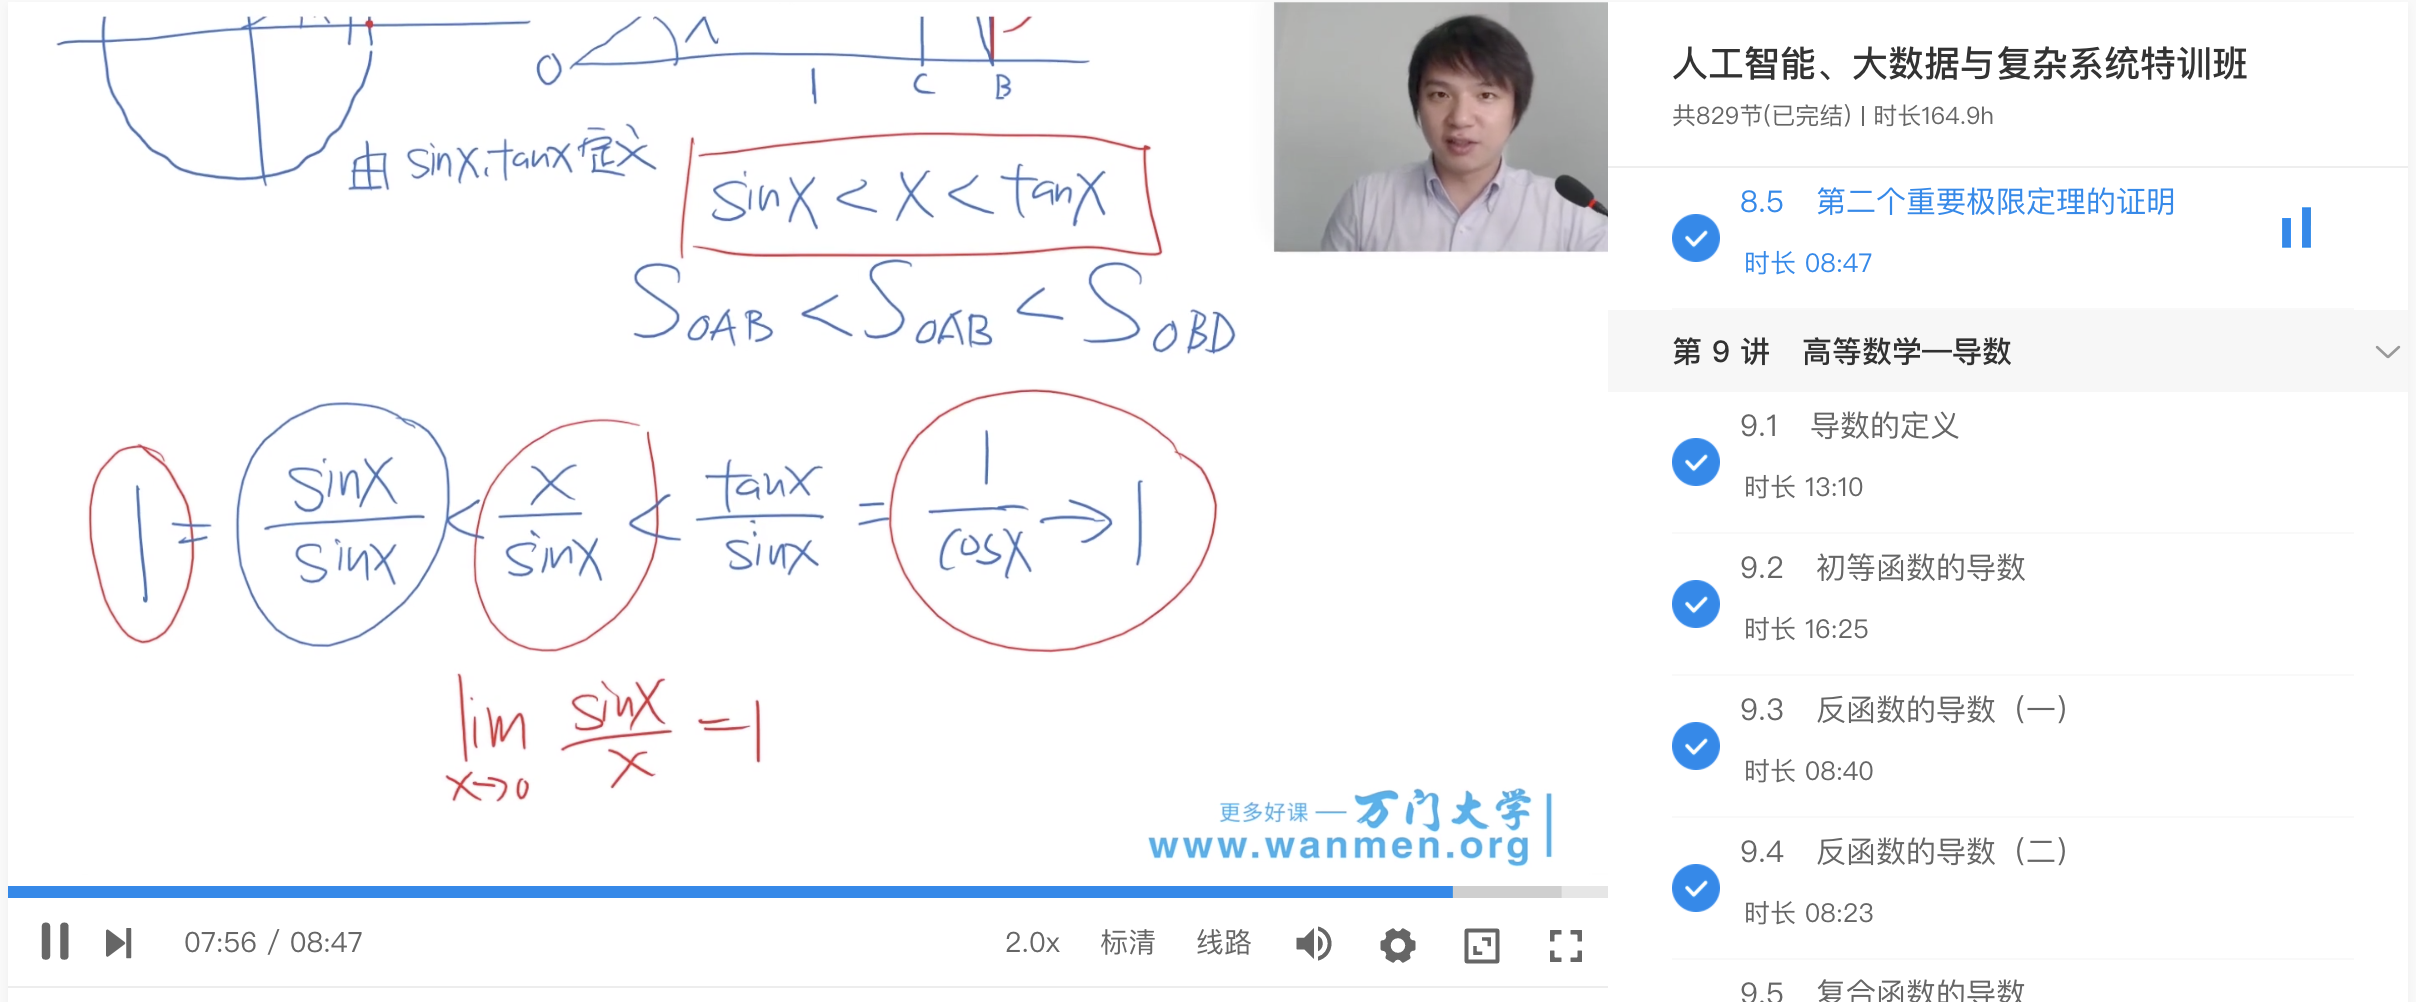 O
1
C
B
由 sinx,tanx定义
sinx < x < tanx
S OAB < S OAB < S OBD
1 = sinx/sinx < x/sinx < tanx/sinx = 1/cosx → 1
lim x→0 sinx/x = 1
更多好课 — 万门大学
www.wanmen.org
07:56 / 08:47
2.0x 标清 线路
人工智能、大数据与复杂系统特训班
共829节(已完结) | 时长164.9h
8.5 第二个重要极限定理的证明
时长 08:47
第 9 讲 高等数学—导数
9.1 导数的定义
时长 13:10
9.2 初等函数的导数
时长 16:25
9.3 反函数的导数（一）
时长 08:40
9.4 反函数的导数（二）
时长 08:23
9.5 复合函数的导数